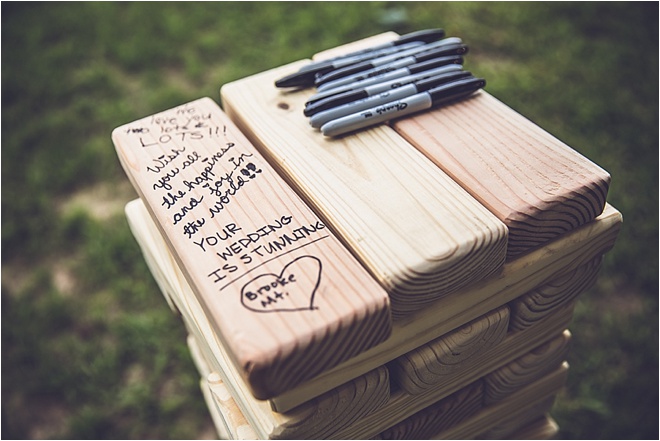 love you
lots &
LOTS!!!
Wish
you all
the happiness
and joy in
the world!!
YOUR
WEDDING
IS STUNNING
Brooke
Mt.
Sharpie